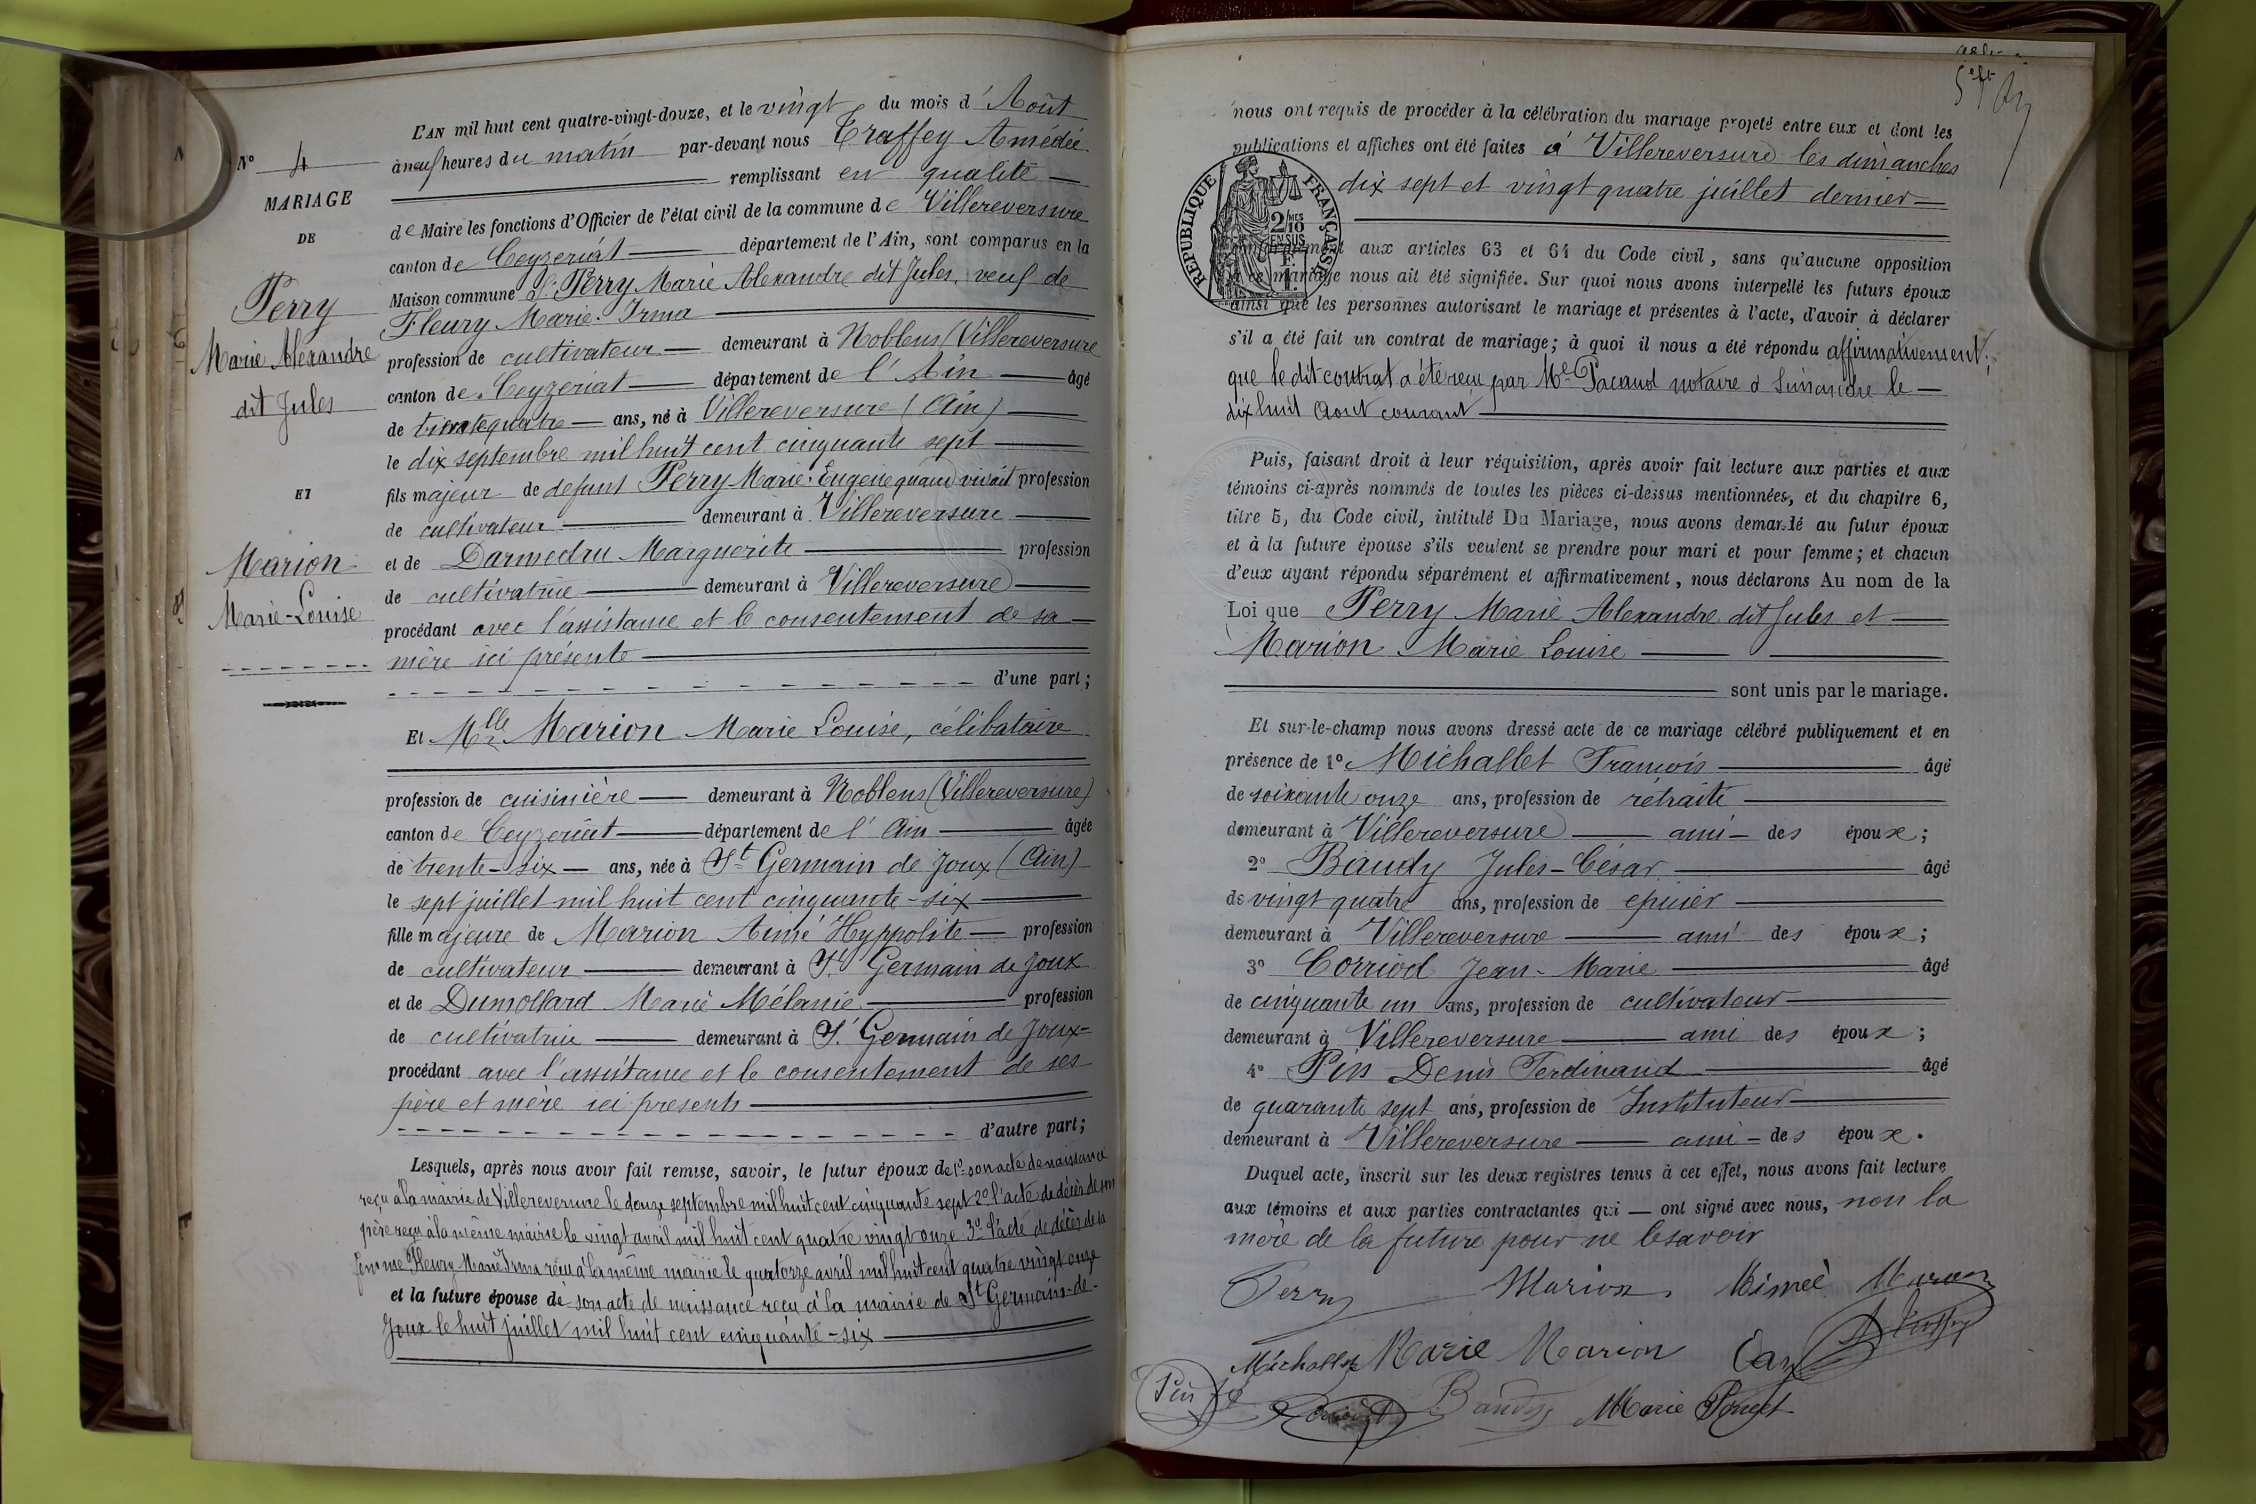 L'AN mil huit cent quatre-vingt-douze, et le vingt du mois d'Août
à neuf heures du matin par-devant nous Traffey Amédée
remplissant en qualité
de Maire les fonctions d'Officier de l'état civil de la commune de Villereversure
canton de Ceyzeriat département de l'Ain, sont comparus en la
Maison commune Sr Perry Marie Alexandre dit Jules, veuf de
Fleury Marie Irma
profession de cultivateur demeurant à Noblens (Villereversure
canton de Ceyzeriat département de l'Ain âgé
de trente quatre ans, né à Villereversure (Ain)
le dix septembre mil huit cent cinquante sept
fils majeur de defunt Perry Marie Eugène quand vivait profession
de cultivateur demeurant à Villereversure
et de Darmedru Marguerite profession
de cultivatrice demeurant à Villereversure
procédant avec l'assistance et le consentement de sa
mère ici présente
d'une part;
Et Mlle Marion Marie Louise, célibataire
profession de cuisinière demeurant à Noblens (Villereversure)
canton de Ceyzeriat département de l'Ain âgée
de trente-six ans, née à St Germain de Joux (Ain)
le sept juillet mil huit cent cinquante-six
fille majeure de Marion Aimé Hyppolite profession
de cultivateur demeurant à St Germain de Joux
et de Dumollard Marie Mélanie profession
de cultivatrice demeurant à St Germain de Joux
procédant avec l'assistance et le consentement de ses
père et mère ici présents
d'autre part;
Lesquels, après nous avoir fait remise, savoir, le futur époux de 1° son acte de naissance
reçu à la mairie de Villereversure le douze septembre mil huit cent cinquante sept 2° l'acte de décès de son
père reçu à la même mairie le vingt avril mil huit cent quatre vingt onze 3° l'acte de décès de la
femme Fleury Marie Irma reçu à la même mairie le quatorze avril mil huit cent quatre vingt onze
et la future épouse de son acte de naissance reçu à la mairie de St Germain-de-
Joux le huit juillet mil huit cent cinquante-six
N° 4
MARIAGE
DE
Perry
Marie Alexandre
dit Jules
ET
Marion
Marie-Louise
nous ont requis de procéder à la célébration du mariage projeté entre eux et dont les
publications et affiches ont été faites à Villereversure les dimanches
dix sept et vingt quatre juillet dernier
RÉPUBLIQUE FRANÇAISE
2/10 MES
EN SUS
conformément aux articles 63 et 64 du Code civil, sans qu'aucune opposition
à ce mariage nous ait été signifiée. Sur quoi nous avons interpellé les futurs époux
ainsi que les personnes autorisant le mariage et présentes à l'acte, d'avoir à déclarer
s'il a été fait un contrat de mariage; à quoi il nous a été répondu affirmativement,
que le dit contrat a été reçu par Me Pacaud notaire à Simandre le
dix huit Août courant
Puis, faisant droit à leur réquisition, après avoir fait lecture aux parties et aux
témoins ci-après nommés de toutes les pièces ci-dessus mentionnées, et du chapitre 6,
titre 5, du Code civil, intitulé Du Mariage, nous avons demandé au futur époux
et à la future épouse s'ils veulent se prendre pour mari et pour femme; et chacun
d'eux ayant répondu séparément et affirmativement, nous déclarons Au nom de la
Loi que Perry Marie Alexandre dit Jules et
Marion Marie Louise
sont unis par le mariage.
Et sur-le-champ nous avons dressé acte de ce mariage célébré publiquement et en
présence de 1° Michallet François âgé
de soixante onze ans, profession de retraité
demeurant à Villereversure ami des époux;
2° Baudy Jules-César âgé
de vingt quatre ans, profession de epicier
demeurant à Villereversure ami des époux;
3° Corriod Jean-Marie âgé
de cinquante un ans, profession de cultivateur
demeurant à Villereversure ami des époux;
4° Pin Denis Ferdinand âgé
de quarante sept ans, profession de Instituteur
demeurant à Villereversure ami des époux.
Duquel acte, inscrit sur les deux registres tenus à cet effet, nous avons fait lecture
aux témoins et aux parties contractantes qui ont signé avec nous, non la
mère de la future pour ne le savoir
Perry Marion Aimée Marion
Michallet Marie Marion
Pin Corriod Baudy Marie